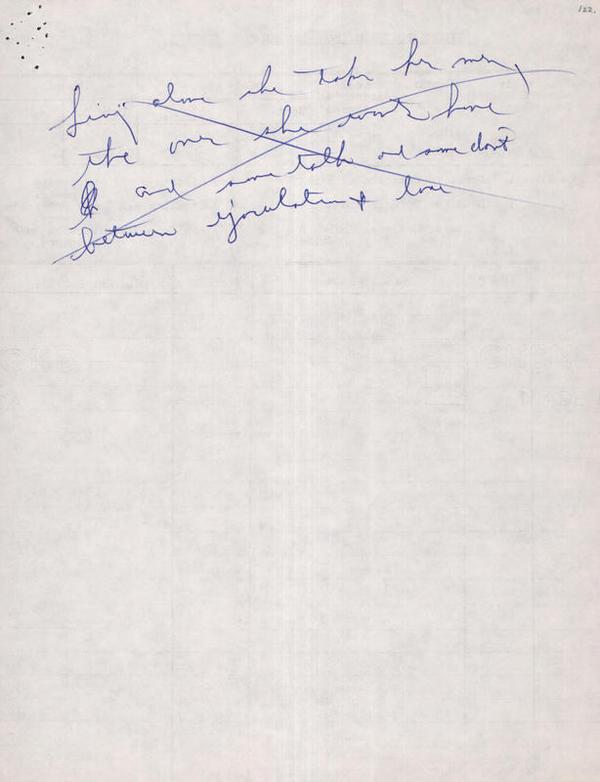 122.
Living alone she takes her men,
the ones she won't have
and some talk and some don't
between ejaculation & love